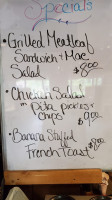 Specials
• Grilled Meatloaf
Sandwich + Mac
Salad $8.00
• Chicken Salad
Pita pickles +
Chips $9.00
• Banana Stuffed
French Toast
$8.00